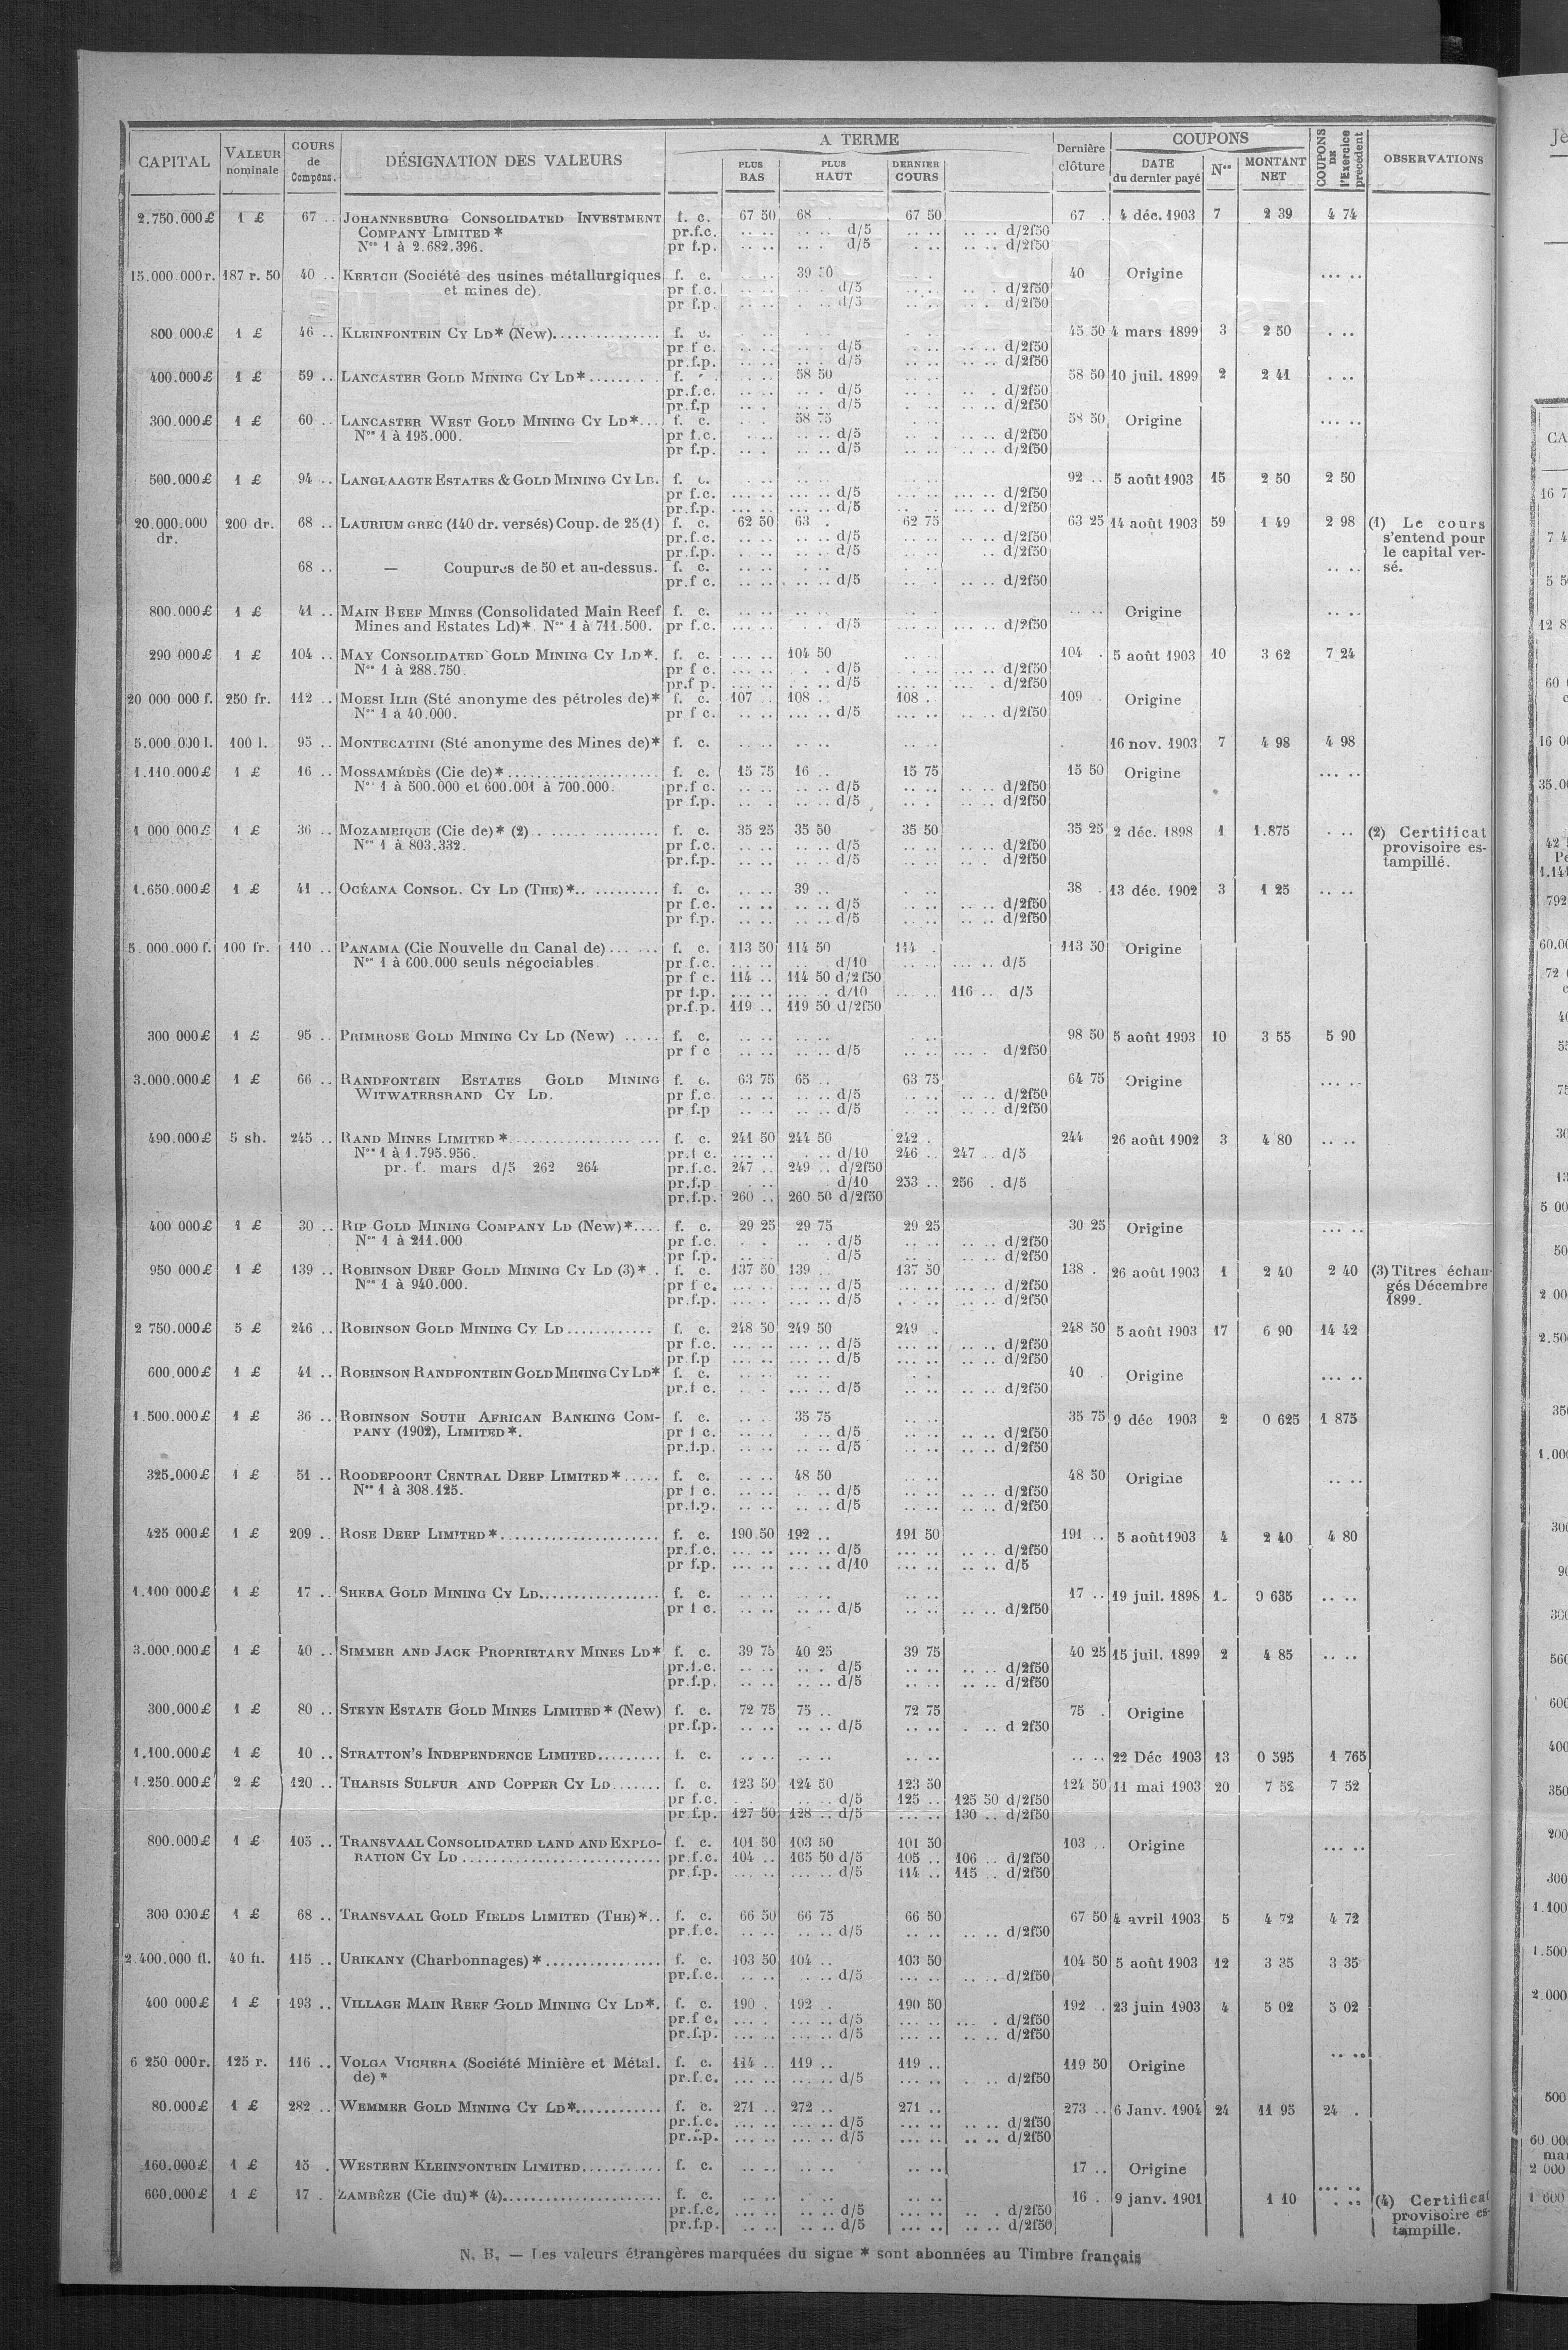 CAPITAL | VALEUR nominale | COURS de Compens. | DÉSIGNATION DES VALEURS | A TERME | PLUS BAS | PLUS HAUT | DERNIER COURS | Dernière clôture | COUPONS | DATE du dernier payé | Nos | MONTANT NET | COUPONS DE l'Exercice précédent | OBSERVATIONS
2.750.000£ 1 £ 67 .. JOHANNESBURG CONSOLIDATED INVESTMENT f. c. 67 50 68 . 67 50 67 . 4 déc. 1903 7 2 39 4 74
COMPANY LIMITED * pr.f.c. .. .. .. .. d/5 .. .. .. .. d/2f50
Nos 1 à 2.682.396. pr f.p. .. .. .. .. d/5 .. .. .. .. d/2f50
15.000.000r. 187 r. 50 40 .. KERTCH (Société des usines métallurgiques f. c. 39 50 40 Origine ... ..
et mines de). pr f.c. d/5 d/2f50
pr f.p. d/5 d/2f50
800.000£ 1 £ 46 .. KLEINFONTEIN CY LD* (New) f. c. 45 50 4 mars 1899 3 2 50
pr f c. d/5 d/2f50
pr.f.p. d/5 d/2f50
400.000£ 1 £ 59 .. LANCASTER GOLD MINING CY LD* f. 58 50 58 50 10 juil. 1899 2 2 41
pr.f.c. d/5 d/2f50
pr.f.p d/5 d/2f50
300.000£ 1 £ 60 .. LANCASTER WEST GOLD MINING CY LD* f. c. 58 75 58 50 Origine
Nos 1 à 195.000. pr f.c. d/5 d/2f50
pr f.p. d/5 d/2f50
500.000£ 1 £ 94 .. LANGLAAGTE ESTATES & GOLD MINING CY LD. f. c. 92 .. 5 août 1903 15 2 50 2 50
pr f.c. d/5 d/2f50
pr.f.p. d/5 d/2f50
20.000.000 200 dr. 68 .. LAURIUM GREC (140 dr. versés) Coup. de 25 (1) f. c. 62 50 63 . 62 75 63 25 14 août 1903 59 1 49 2 98 (1) Le cours
dr. pr.f.c. d/5 d/2f50 s'entend pour
pr.f.p. d/5 d/2f50 le capital ver-
68 .. — Coupures de 50 et au-dessus. f. c. sé.
pr.f c. d/5 d/2f50
800.000£ 1 £ 41 .. MAIN REEF MINES (Consolidated Main Reef f. c. Origine
Mines and Estates Ld)* Nos 1 à 711.500. pr f.c. d/5 d/2f50
290 000£ 1 £ 104 .. MAY CONSOLIDATED GOLD MINING CY LD*. f. c. 104 50 104 . 5 août 1903 10 3 62 7 24
Nos 1 à 288.750. pr f c. d/5 d/2f50
pr.f p. d/5 d/2f50
20 000 000 f. 250 fr. 112 .. MOESI ILIR (Sté anonyme des pétroles de)* f. c. 107 108 .. 108 . 109 Origine
Nos 1 à 40.000. pr f c. d/5 d/2f50
5.000 000 l. 100 l. 95 .. MONTECATINI (Sté anonyme des Mines de)* f. c. 16 nov. 1903 7 4 98 4 98
1.110.000£ 1 £ 16 .. MOSSAMÉDÈS (Cie de)* f. c. 15 75 16 .. 15 75 15 50 Origine
Nos 1 à 500.000 et 600.001 à 700.000. pr.f c. d/5 d/2f50
pr f.p. d/5 d/2f50
1 000 000£ 1 £ 36 .. MOZAMBIQUE (Cie de)* (2) f. c. 35 25 35 50 35 50 35 25 2 déc. 1898 1 1.875 (2) Certificat
Nos 1 à 803.332. pr f.c. d/5 d/2f50 provisoire es-
pr.f.p. d/5 d/2f50 tampillé.
1.650.000£ 1 £ 41 .. OCÉANA CONSOL. CY LD (THE)* f. c. 39 .. 38 . 13 déc. 1902 3 1 25
pr f.c. d/5 d/2f50
pr f.p. d/5 d/2f50
5.000.000 f. 100 fr. 110 .. PANAMA (Cie Nouvelle du Canal de) f. c. 113 50 114 50 114 . 113 50 Origine
Nos 1 à 600.000 seuls négociables pr f.c. d/10 d/5
pr f c. 114 .. 114 50 d/2f50
pr f.p. d/10 116 .. d/5
pr.f.p. 119 .. 119 50 d/2f50
300 000£ 1 £ 95 .. PRIMROSE GOLD MINING CY LD (New) f. c. 98 50 5 août 1903 10 3 55 5 90
pr f c d/5 d/2f50
3.000.000£ 1 £ 66 .. RANDFONTEIN ESTATES GOLD MINING f. c. 63 75 65 .. 63 75 64 75 Origine
WITWATERSRAND CY LD. pr f.c. d/5 d/2f50
pr f.p d/5 d/2f50
490.000£ 5 sh. 245 .. RAND MINES LIMITED * f. c. 241 50 244 50 242 . 244 26 août 1902 3 4 80
Nos 1 à 1.795.956. pr.f c. d/10 246 .. 247 .. d/5
pr. f. mars d/5 262 264 pr.f.c. 247 .. 249 .. d/2f50
pr.f.p d/10 253 .. 256 . d/5
pr.f.p. 260 .. 260 50 d/2f50
400 000£ 1 £ 30 .. RIP GOLD MINING COMPANY LD (New)* f. c. 29 25 29 75 29 25 30 25 Origine
Nos 1 à 211.000 pr f.c. d/5 d/2f50
pr f.p. d/5 d/2f50
950 000£ 1 £ 139 .. ROBINSON DEEP GOLD MINING CY LD (3)* f. c. 137 50 139 .. 137 50 138 . 26 août 1903 1 2 40 2 40 (3) Titres échan-
Nos 1 à 940.000. pr f c. d/5 d/2f50 gés Décembre
pr.f.p. d/5 d/2f50 1899.
2 750.000£ 5 £ 246 .. ROBINSON GOLD MINING CY LD f. c. 248 50 249 50 249 . 248 50 5 août 1903 17 6 90 14 42
pr f.c. d/5 d/2f50
pr.f.p d/5 d/2f50
600.000£ 1 £ 41 .. ROBINSON RANDFONTEIN GOLD MINING CY LD* f. c. 40 Origine
pr.f c. d/5 d/2f50
1.500.000£ 1 £ 36 .. ROBINSON SOUTH AFRICAN BANKING COM- f. c. 35 75 35 75 9 déc 1903 2 0 625 1 875
PANY (1902), LIMITED*. pr f c. d/5 d/2f50
pr.f.p. d/5 d/2f50
325.000£ 1 £ 51 .. ROODEPOORT CENTRAL DEEP LIMITED* f. c. 48 50 48 50 Origine
Nos 1 à 308.125. pr f c. d/5 d/2f50
pr.f.p. d/5 d/2f50
425 000£ 1 £ 209 .. ROSE DEEP LIMITED* f. c. 190.50 192 .. 191 50 191 .. 5 août 1903 4 2 40 4 80
pr.f.c. d/5 d/2f50
pr f.p. d/10 d/5
1.100 000£ 1 £ 17 .. SHEBA GOLD MINING CY LD f. c. 17 .. 19 juil. 1898 1 0 635
pr f c. d/5 d/2f50
3.000.000£ 1 £ 40 .. SIMMER AND JACK PROPRIETARY MINES LD* f. c. 39 75 40 25 39 75 40 25 15 juil. 1899 2 4 85
pr.f.c. d/5 d/2f50
pr.f.p. d/5 d/2f50
300.000£ 1 £ 80 .. STEYN ESTATE GOLD MINES LIMITED * (New) f. c. 72 75 75 .. 72 75 75 . Origine
pr.f.p. d/5 d 2f50
1.100.000£ 1 £ 10 .. STRATTON'S INDEPENDENCE LIMITED f. c. 22 Déc 1903 13 0 595 1 765
1.250.000£ 2 £ 120 .. THARSIS SULFUR AND COPPER CY LD f. c. 123 50 124 50 123 50 124 50 11 mai 1903 20 7 52 7 52
pr f.c. d/5 125 .. 125 50 d/2f50
pr f.p. 127 50 128 .. d/5 130 .. d/2f50
800.000£ 1 £ 105 .. TRANSVAAL CONSOLIDATED LAND AND EXPLO- f. c. 101 50 103 50 101 50 103 .. Origine
RATION CY LD pr.f.c. 104 .. 105 50 d/5 105 .. 106 .. d/2f50
pr.f.p. d/5 114 .. 115 .. d/2f50
300 000£ 1 £ 68 .. TRANSVAAL GOLD FIELDS LIMITED (THE)* f. c. 66 50 66 75 66 50 67 50 4 avril 1903 5 4 72 4 72
pr.f.c. d/5 d/2f50
2.400.000 fl. 40 fl. 115 .. URIKANY (Charbonnages)* f. c. 103 50 104 .. 103 50 104 50 5 août 1903 12 3 35 3 35
pr.f.c. d/5 d/2f50
400 000£ 1 £ 193 .. VILLAGE MAIN REEF GOLD MINING CY LD*. f. c. 190 . 192 .. 190 50 192 . 23 juin 1903 4 5 02 5 02
pr.f c. d/5 d/2f50
pr.f.p. d/5 d/2f50
6 250 000r. 125 r. 116 .. VOLGA VICHERA (Société Minière et Métal. f. c. 114 .. 119 .. 119 .. 119 50 Origine
de) * pr.f.c. d/5 d/2f50
80.000£ 1 £ 282 .. WEMMER GOLD MINING CY LD* f. c. 271 .. 272 .. 271 .. 273 .. 6 Janv. 1904 24 11 95 24 .
pr.f.c. d/5 d/2f50
pr.f.p. d/5 d/2f50
160.000£ 1 £ 15 . WESTERN KLEINFONTEIN LIMITED f. c. 17 .. Origine
600.000£ 1 £ 17 . ZAMBÈZE (Cie du)* (4) f. c. 16 . 9 janv. 1901 1 10 (4) Certificat
pr.f.c. d/5 d/2f50 provisoire es-
pr.f.p. d/5 d/2f50 tampille.
N. B. — Les valeurs étrangères marquées du signe * sont abonnées au Timbre français